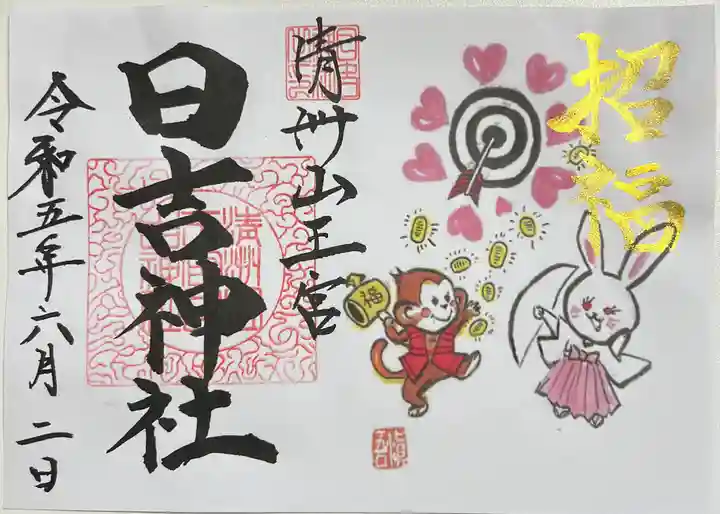 招福
清州山王宮
日吉神社
令和五年六月二日
福